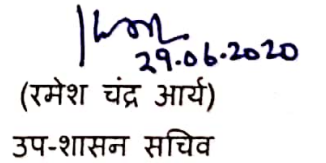 29.06.2020
(रमेश चंद्र आर्य)
उप-शासन सचिव